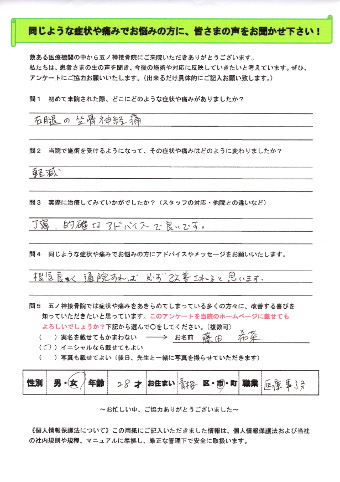 同じような症状や痛みでお悩みの方に、皆さまの声をお聞かせ下さい！
数ある医療機関の中から五ノ神接骨院にご来院いただきありがとうございます。
私たちは、患者さまの生の声を聞き、今後の施術や対応に反映していきたいと考えています。ぜひ、
アンケートにご協力お願いいたします。(出来るだけ具体的にご記入お願い致します。)
問1 初めて来院された際、どこにどのような症状や痛みがありましたか？
右腿の坐骨神経痛
問2 当院で施術を受けるようになって、その症状や痛みはどのように変わりましたか？
軽減
問3 実際に治療してみていかがでしたか？（スタッフの対応・他院との違いなど）
丁寧、的確なアドバイスで良いです。
問4 同じような症状や痛みでお悩みの方にアドバイスやメッセージをお願いいたします。
根気良く通院すれば必ず改善されると思います。
問5 五ノ神接骨院では症状や痛みをあきらめてしまっている多くの方々に、改善する喜びを
知っていただきたいと思っています。このアンケートを当院のホームページに載せても
よろしいでしょうか？下記から選んで○をしてください。（複数可）
（　）実名を載せてもかまわない → お名前 藤田
（○）イニシャルなら載せてもよい
（　）写真も載せてよい（後日、先生と一緒に写真を撮らせていただきます）
性別 男・女 年齢 28才 お住まい 区・市・町 職業 医療事務
～お忙しい中、ご協力ありがとうございました～
《個人情報保護法について》この用紙にご記入いただきました情報は、個人情報保護法および当社
の社内規則や規程、マニュアルに準拠し、厳正な管理下で安全に取扱います。